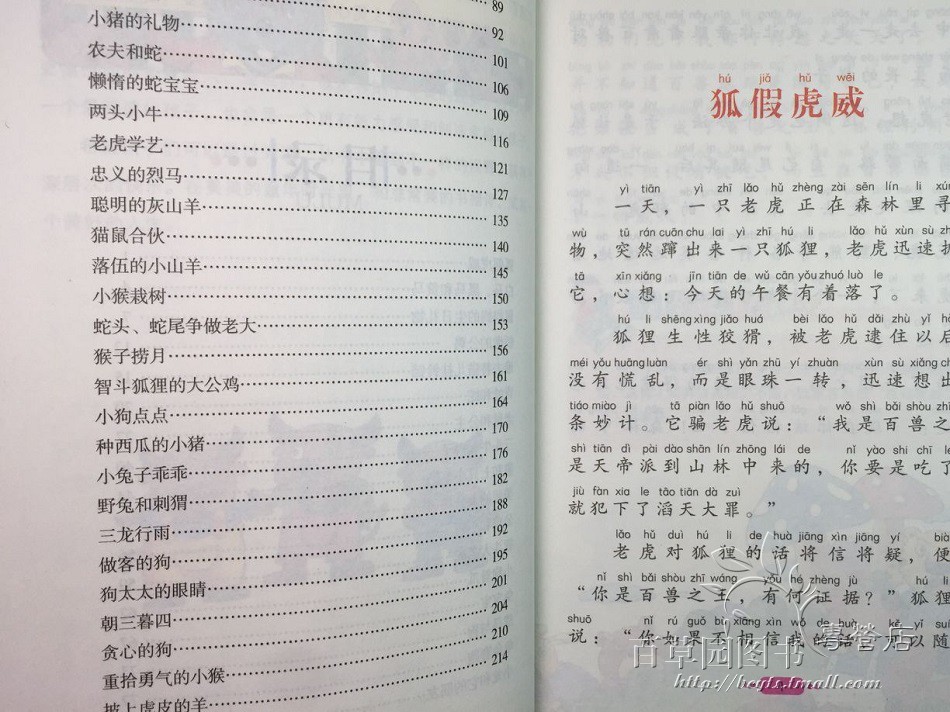 89
小猪的礼物 92
农夫和蛇 101
懒惰的蛇宝宝 106
两头小牛 109
老虎学艺 116
忠义的烈马 121
聪明的灰山羊 127
猫鼠合伙 135
落伍的小山羊 140
小猴栽树 145
蛇头、蛇尾争做老大 150
猴子捞月 153
智斗狐狸的大公鸡 156
小狗点点 161
种西瓜的小猪 164
小兔子乖乖 170
野兔和刺猬 176
三龙行雨 182
做客的狗 188
狗太太的眼睛 192
朝三暮四 195
贪心的狗 201
重拾勇气的小猴 204
披上虎皮的羊 210
214
hú jiǎ hǔ wēi
狐假虎威
yì tiān yì zhī lǎo hǔ zhèng zài sēn lín li xú
一天，一只老虎正在森林里寻
wù tū rán cuān chu lai yì zhī hú li lǎo hǔ xùn sù
物，突然蹿出来一只狐狸，老虎迅速
tā xīn xiǎng jīn tiān de wǔ cān yǒu zhuó luò le
它，心想：今天的午餐有着落了。
hú li shēng xìng jiǎo huá bèi lǎo hǔ dǎi zhù yǐ
狐狸生性狡猾，被老虎逮住以后
méi yǒu huāng luàn ér shì yǎn zhū yí zhuàn xùn sù xiǎng
没有慌乱，而是眼珠一转，迅速想出
tiáo miào jì tā piàn lǎo hǔ shuō wǒ shì bǎi shòu
条妙计。它骗老虎说：“我是百兽之
shì tiān dì pài dào shān lín zhōng lái de nǐ yào shi chī le
是天帝派到山林中来的，你要是吃了
jiù fàn xia le tāo tiān dà zuì
就犯下了滔天大罪。”
lǎo hǔ duì hú li de huà jiāng xìn jiāng yí
老虎对狐狸的话将信将疑，便
nǐ shì bǎi shòu zhī wáng yǒu hé zhèng jù hú l
“你是百兽之王，有何证据？”狐狸
shuō nǐ rú guǒ bù xiāng xìn wǒ de huà kě yǐ suí
说：“你如果不相信我的话，可以随
百草园图书 專營店
http://bcyts.tmall.com